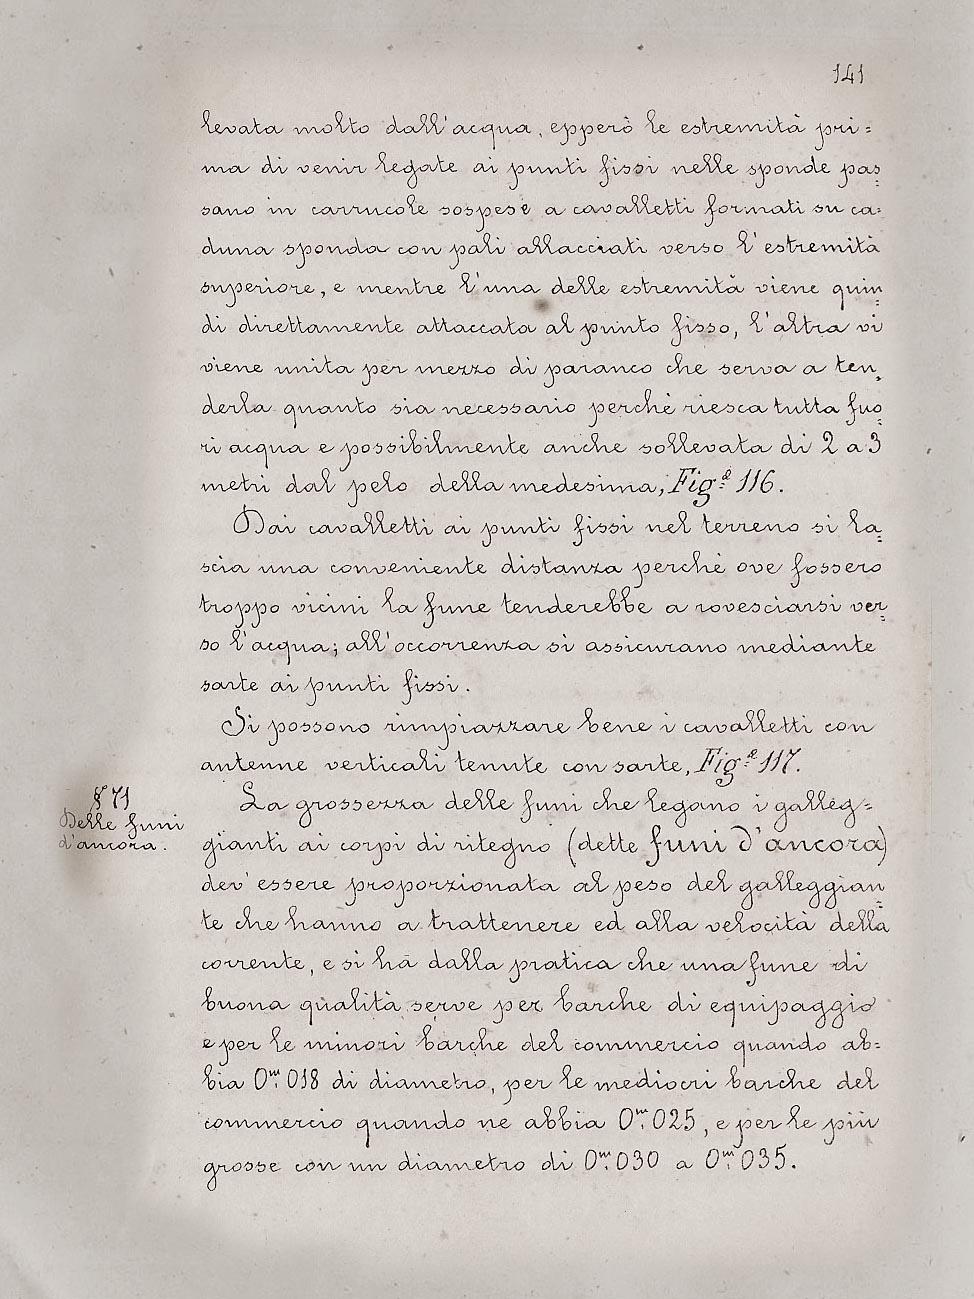 141
levata molto dall'acqua, epperò le estremità pri=
ma di venir legate ai punti fissi nelle sponde pas=
sano in carrucole sospese a cavalletti formati su ca=
duna sponda con pali allacciati verso l'estremità
superiore, e mentre l'una delle estremità viene quin=
di direttamente attaccata al punto fisso, l'altra vi
viene unita per mezzo di paranco che serva a ten=
derla quanto sia necessario perchè riesca tutta fuo=
ri acqua e possibilmente anche sollevata di 2 a 3
metri dal pelo della medesima, Fig.ª 116.
Dai cavalletti ai punti fissi nel terreno si la=
scia una conveniente distanza perchè ove fossero
troppo vicini la fune tenderebbe a rovesciarsi ver=
so l'acqua; all'occorrenza si assicurano mediante
sarte ai punti fissi.
Si possono rimpiazzare bene i cavalletti con
antenne verticali tenute con sarte, Fig.ª 117.
§ 71
Delle funi
d'ancora.
La grossezza delle funi che legano i galleg=
gianti ai corpi di ritegno (dette funi d'ancora)
dev'essere proporzionata al peso del galleggian=
te che hanno a trattenere ed alla velocità della
corrente, e si ha dalla pratica che una fune di
buona qualità serve per barche di equipaggio
e per le minori barche del commercio quando ab=
bia 0.ᵐ018 di diametro, per le mediocri barche del
commercio quando ne abbia 0.ᵐ025, e per le più
grosse con un diametro di 0.ᵐ030 a 0.ᵐ035.